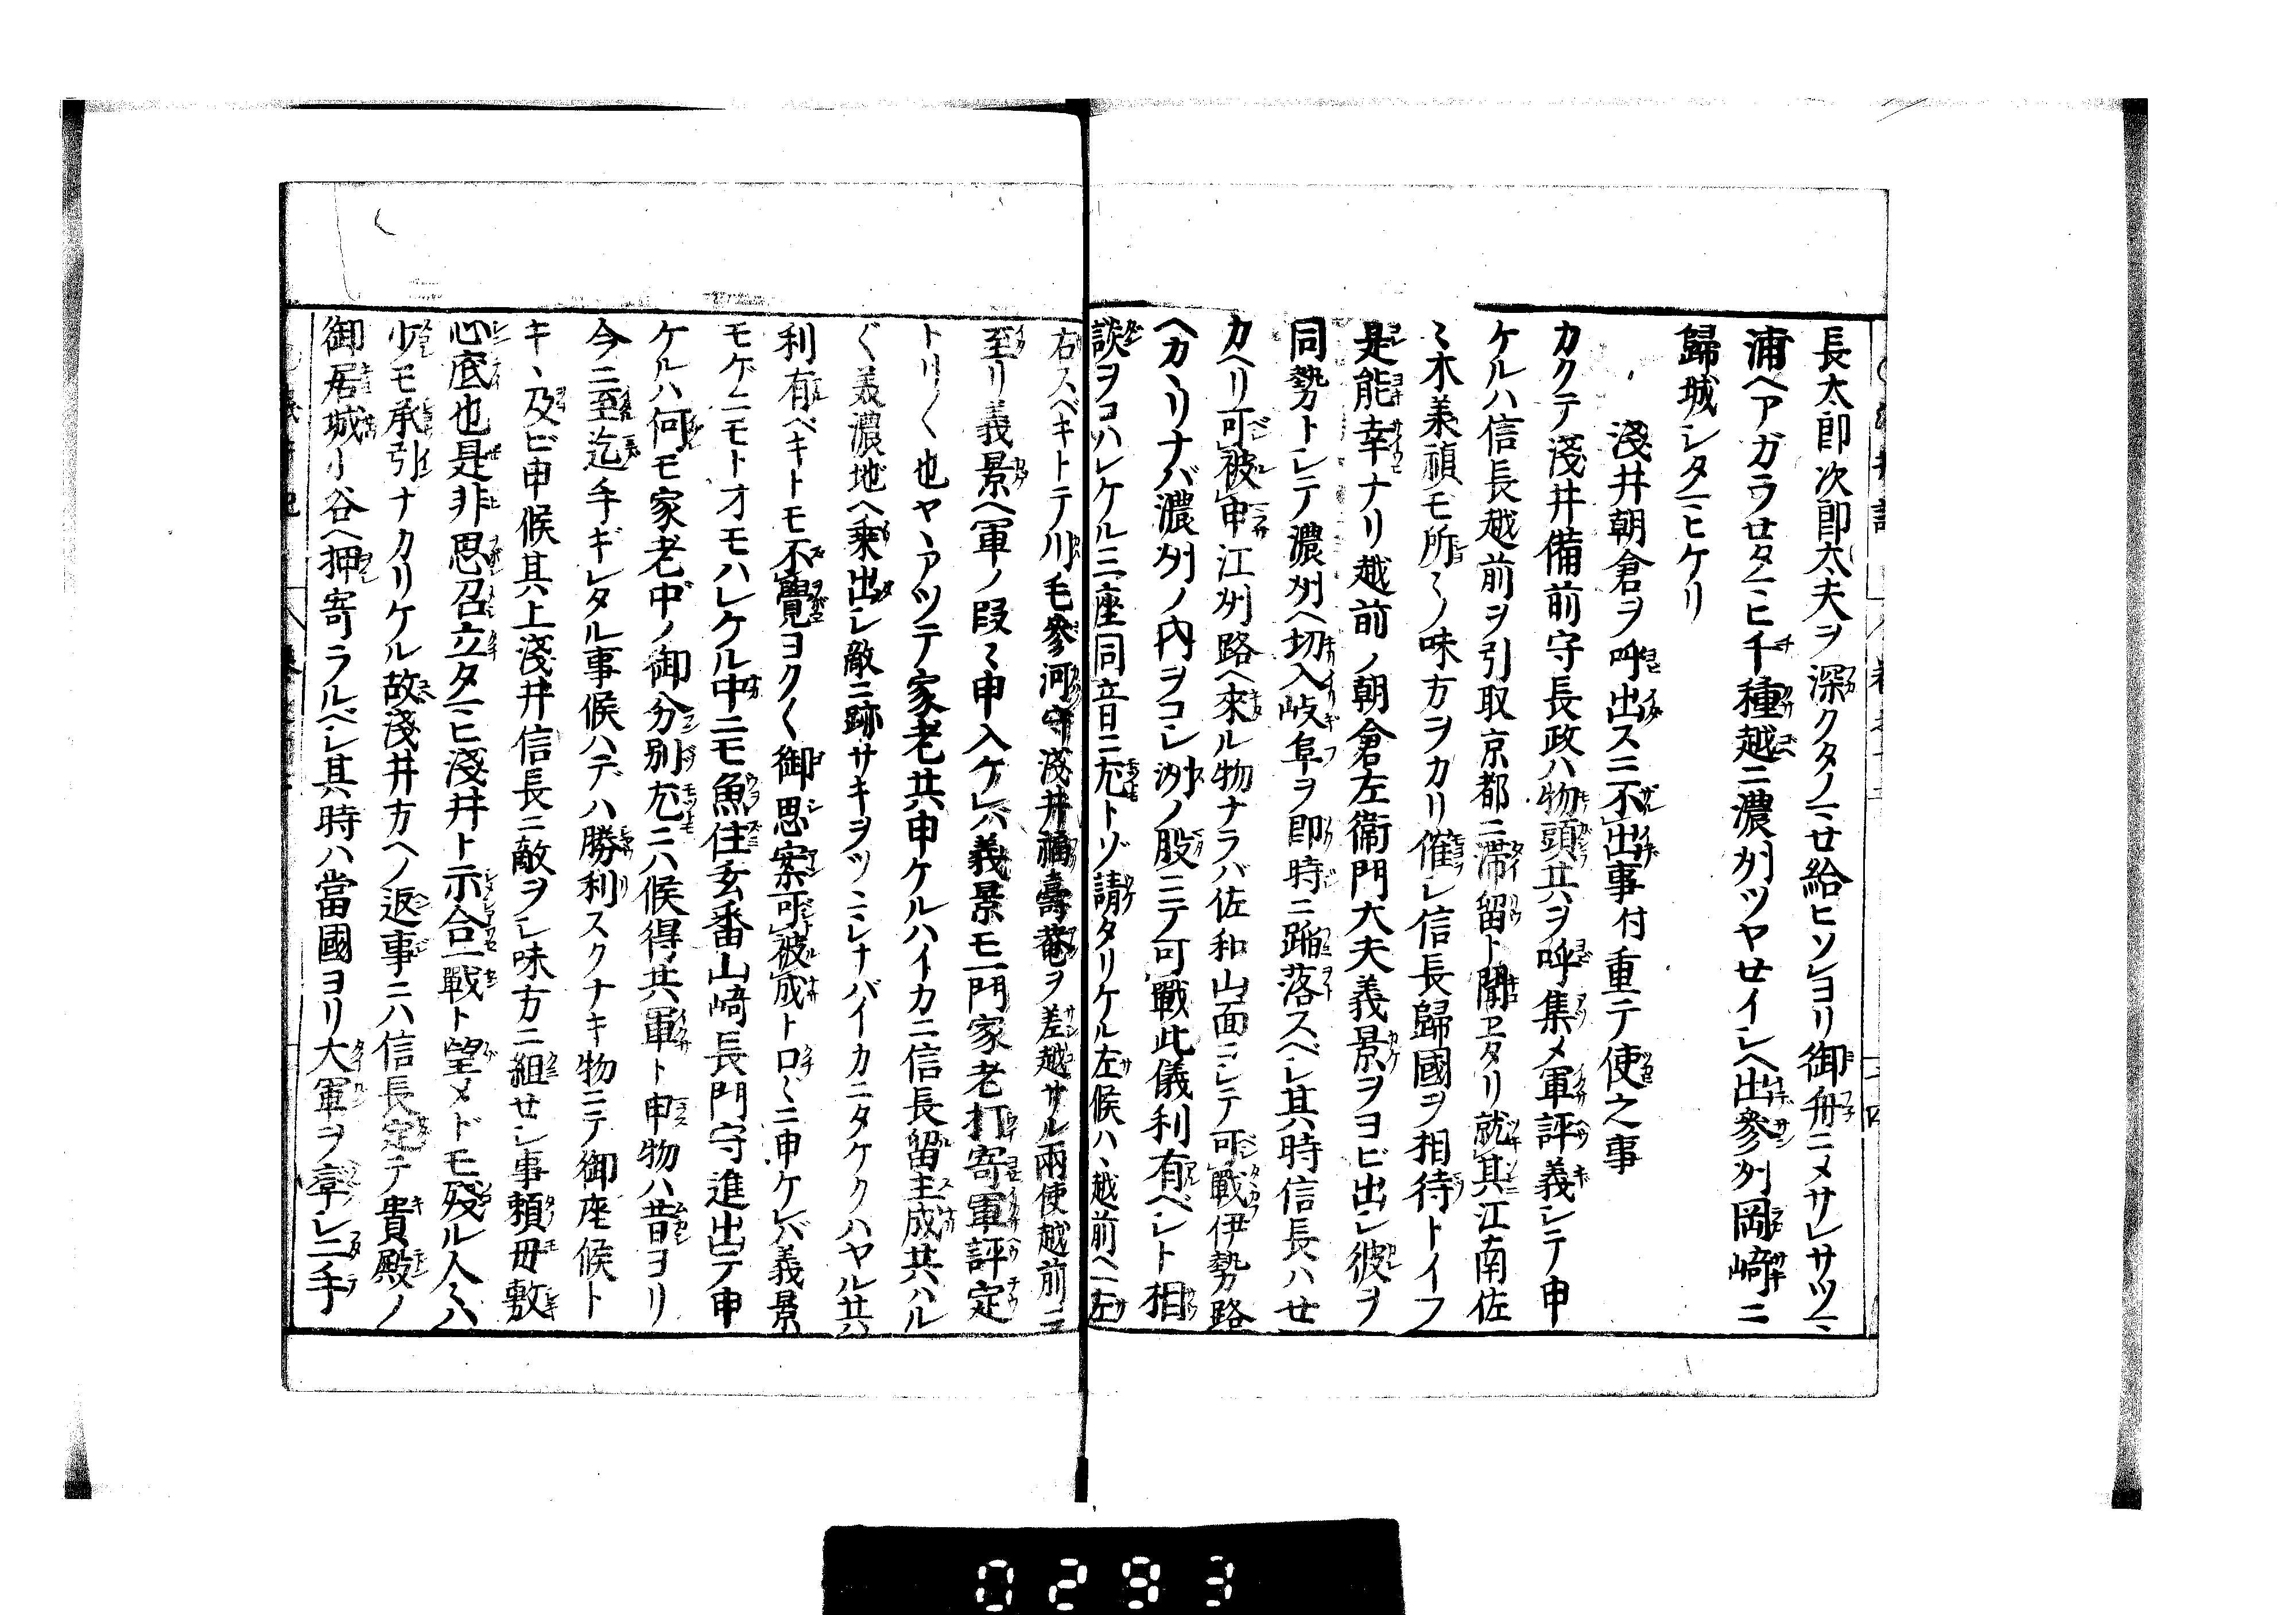 長太郎次郎太夫ヲ深クタノマせ給ヒソレヨリ御舟ニメサレサツマヽ
浦ヘアガラせタマヒ千種越ニ濃州ツヤせイレヘ出參州岡﨑ニ
歸城シタマヒケリ
淺井朝倉ヲ呼出スニ不出事付重テ使之事
カクテ淺井備前守長政ハ物頭共ヲ呼集メ軍評義シテ申
ケルハ信長越前ヲ引取京都ニ滞留ト聞ヱタリ就其江南佐
々木義禎モ所々ノ味方ヲカリ催シ信長歸國ヲ相待トイフ
是能幸ナリ越前ノ朝倉左衞門大夫義景ヲヨビ出シ彼ヲ
同勢トシテ濃州ヘ切入岐阜ヲ即時ニ蹈落スベシ其時信長ハせ
カヘリ可被申江州路ヘ來ル物ナラバ佐和山面ニシテ可戰伊勢路
ヘカヽリナバ濃州ノ内ヲコシ州ノ股ニテ可戰此儀利有ベシト相
談ヲコハシケル三座同音ニ尤トゾ請タリケル左候ハヽ越前ヘ左
右スベキトテ川毛參河守淺井福壽菴ヲ差越サル兩使越前ニ
至リ義景ヘ軍ノ段々申入ケレバ義景モ一門家老打寄軍評定
トリ〱也ヤヽアツテ家老共申ケルハイカニ信長留主成共ハル
〲美濃地ヘ乗出シ敵ニ跡サキヲツヽミシナバイカニタケクハヤル共
利有ベキトモ不覺ヨク〱御思案可被成ト口々ニ申ケレバ義景
モゲニモトオモハレケル中ニモ魚住玄番山﨑長門守進出テ申
ケルハ何モ家老中ノ御分別尤ニハ候得共軍ト申物ハ昔ヨリ
今ニ至迄手ギレタル事候ハデハ勝利スクナキ物ニテ御座候ト
キヽ及ビ申候其上淺井信長ニ敵ヲシ味方ニ組せシ事頼母敷
心底也是非思召立タマヒ淺井ト示合一戰ト望メドモ殘ル人々ハ
少モ承引ナカリケル故淺井カヘノ返事ニハ信長定テ貴殿ノ
御居城小谷ヘ押寄ラルベシ其時ハ當國ヨリ大軍ヲ卒シ二手
0293